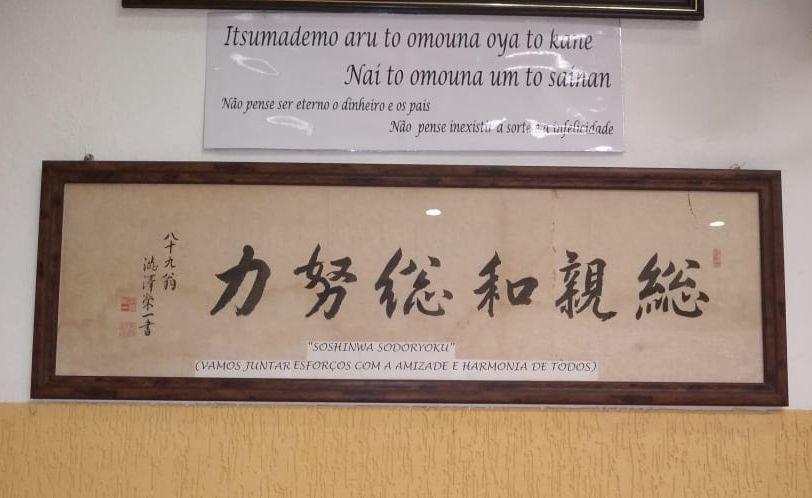 Itsumademo aru to omouna oya to kane
Nai to omouna um to sainan
Não pense ser eterno o dinheiro e os pais
Não pense inexistir a sorte e a infelicidade
力努総和親総
八十九翁
澁澤榮一書
"SOSHINWA SODORYOKU"
(VAMOS JUNTAR ESFORÇOS COM A AMIZADE E HARMONIA DE TODOS)